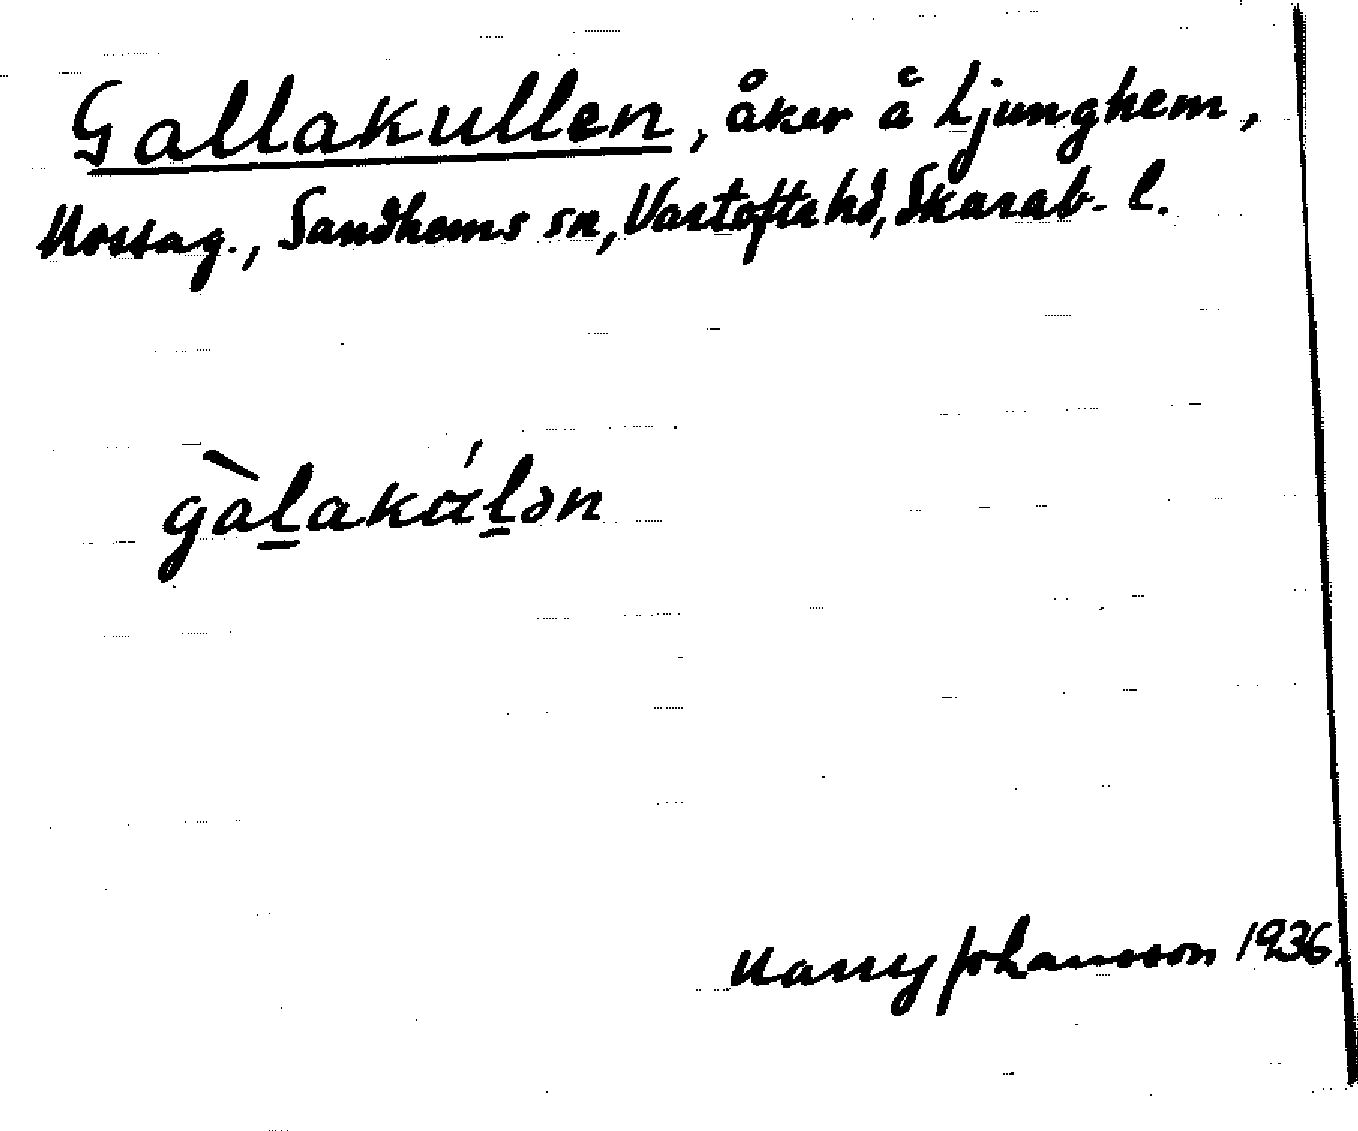 Gallakullen, åker å Ljunghem,
Hossag., Sandhems sn, Vartofta hd, Skarab. l.
gàl̠akɑ́l̠ən
Harry Johansson 1936.